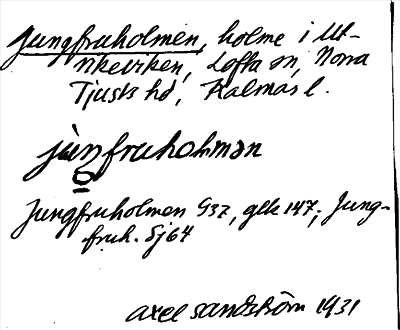 Jungfruholmen, holme i Ut-
rikeviken, Lofta sn, Norra
Tjusts hd, Kalmar l.
jùŋfruholmən
Jungfruholmen G37, gek 147; Jung-
fruh. Sj64
Axel Sandström 1931